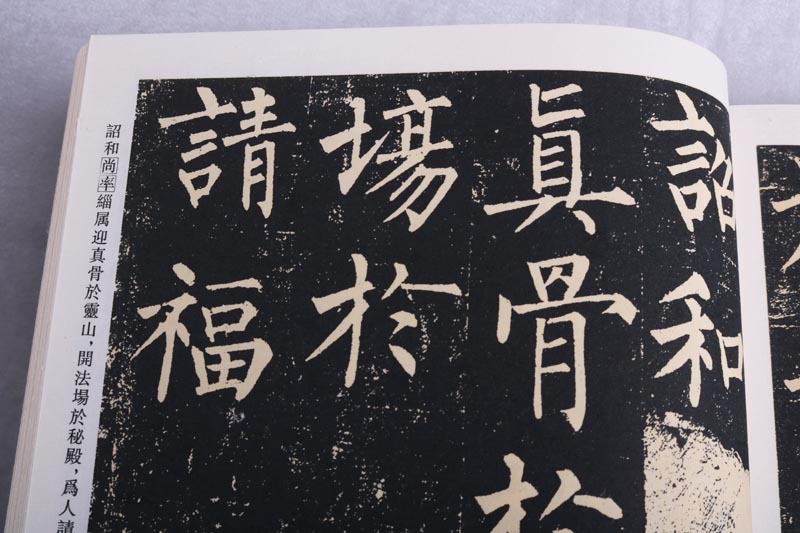 詔和
眞骨於
塲於
請福
詔和尚率緇属迎真骨於靈山，開法場於秘殿，爲人請